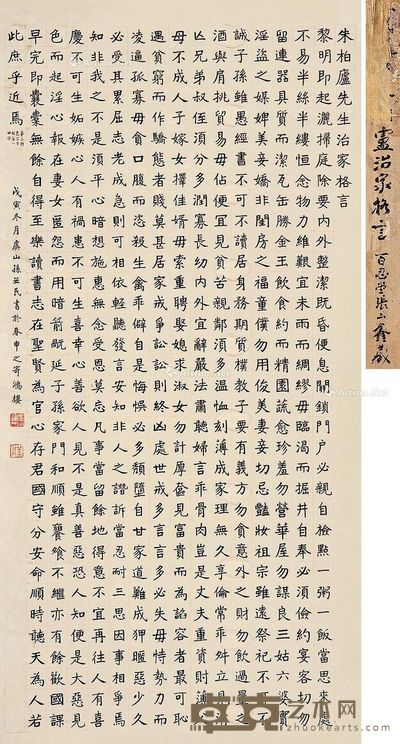 朱柏廬先生治家格言
黎明即起灑掃庭除要內外整潔既昏便息關鎖門戶必親自檢點一粥一飯當思來處
不易半絲半縷恒念物力維艱宜未雨而綢繆毋臨渴而掘井自奉必須儉約宴客切勿
留連器具質而潔瓦缶勝金玉飲食約而精園蔬愈珍羞勿營華屋勿謀良三姑六婆實
淫盜之媒婢美妾嬌非閨房之福童僕勿用俊美妻妾切忌豔妝祖宗雖遠祭祀不可不
誠子孫雖愚經書不可不讀居身務期質樸教子要有義方勿貪意外之財勿飲過量之
酒與肩挑貿易毋佔便宜見貧苦親鄰須多溫恤刻薄成家理無久享倫常乖舛立見消
亡兄弟叔侄須分多潤寡長幼內外宜辭嚴法肅聽婦言乖骨肉豈是丈夫重資財薄父
母不成人子嫁女擇佳婿毋索重聘娶媳求淑女勿計厚奩見富貴而為諂容者最可恥
遇貧窮而作驕態者賤莫甚居家戒爭訟訟則終凶處世戒多言言多必失毋恃勢力而
凌逼孤寡毋貪口腹而恣殺生禽乖僻自是悔誤必多頹惰自甘家道難成狎暱惡少久
必受其累屈志老成急則可相依輕聽發言安知非人之譖訴當忍耐三思因事相爭焉
知非我之不是須平心暗想施惠無念受恩莫忘凡事當留餘地得意不宜再往人有喜
慶不可生妒嫉心人有禍患不可生喜幸心善欲人見不是真善惡恐人知便是大惡見
色而起淫心報在妻女匿怨而用暗箭禍延子孫家門和順雖饔飧不繼亦有餘歡國課
早完即囊橐無餘自得至樂讀書志在聖賢為官心存君國守分安命順時聽天為人若
此庶乎近焉
戊寅冬月虞山孫民書於春申之寄鴻樓
廬治家格言
百忍堂張山鑫藏